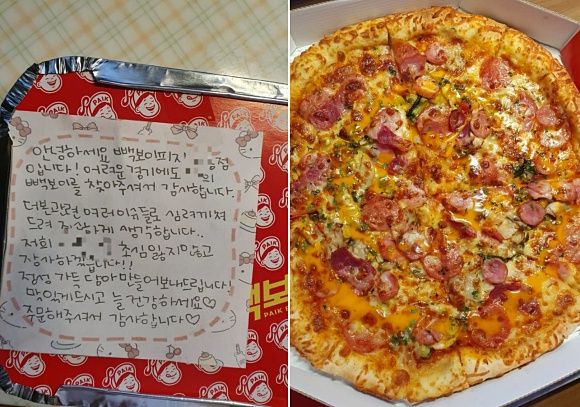 안녕하세요 빽보이피자 점
입니다! 어려운 경기에도 의
빽보이를 찾아주셔서 감사합니다.
더본관련 여러 이슈들로 심려끼쳐
드려 죄송하게 생각합니다..
저희 초심 잃지않고
장사하겠습니다!!
정성 가득 담아 만들어보내드립니다!
맛있게드시고 늘 건강하세요♡
주문해주셔서 감사합니다♡
PAIK
빽보
PAIK